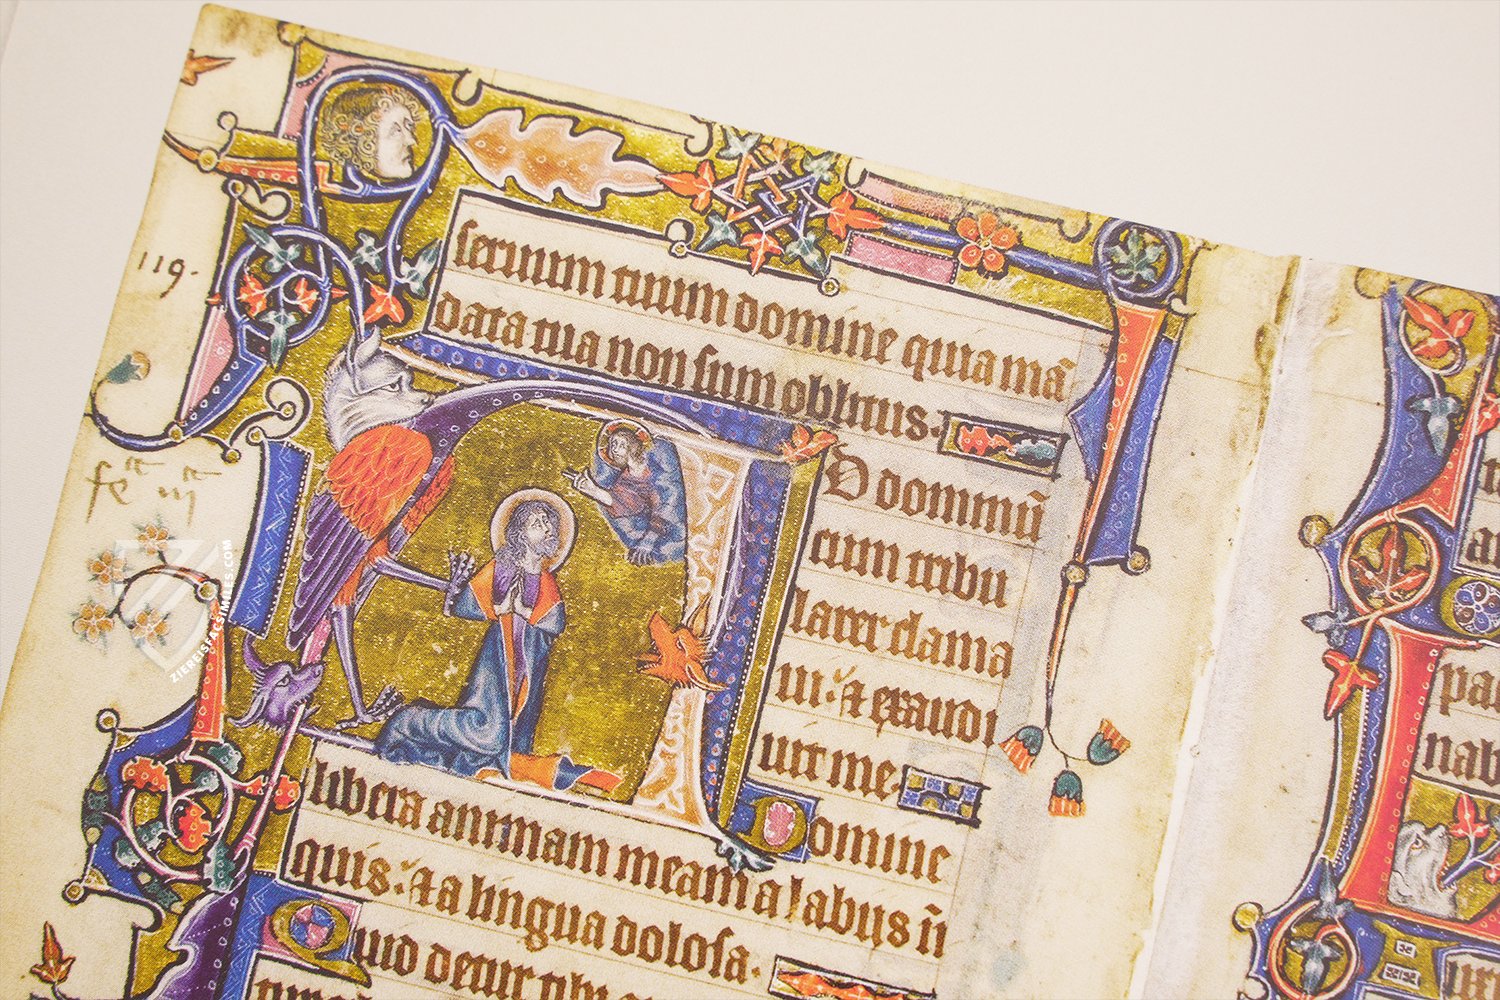 seruum tuum domine quia mā
data tua non sum oblitus.
119.
AD dominū
cum tribu
larer clama
ui. ⁊ exaudi
uit me.
Domine
libera animam meam a labiis ī
quis. ⁊ a lingua dolosa.
Quid detur tibi
ZIEREISFACSIMILES.COM
pa
nab